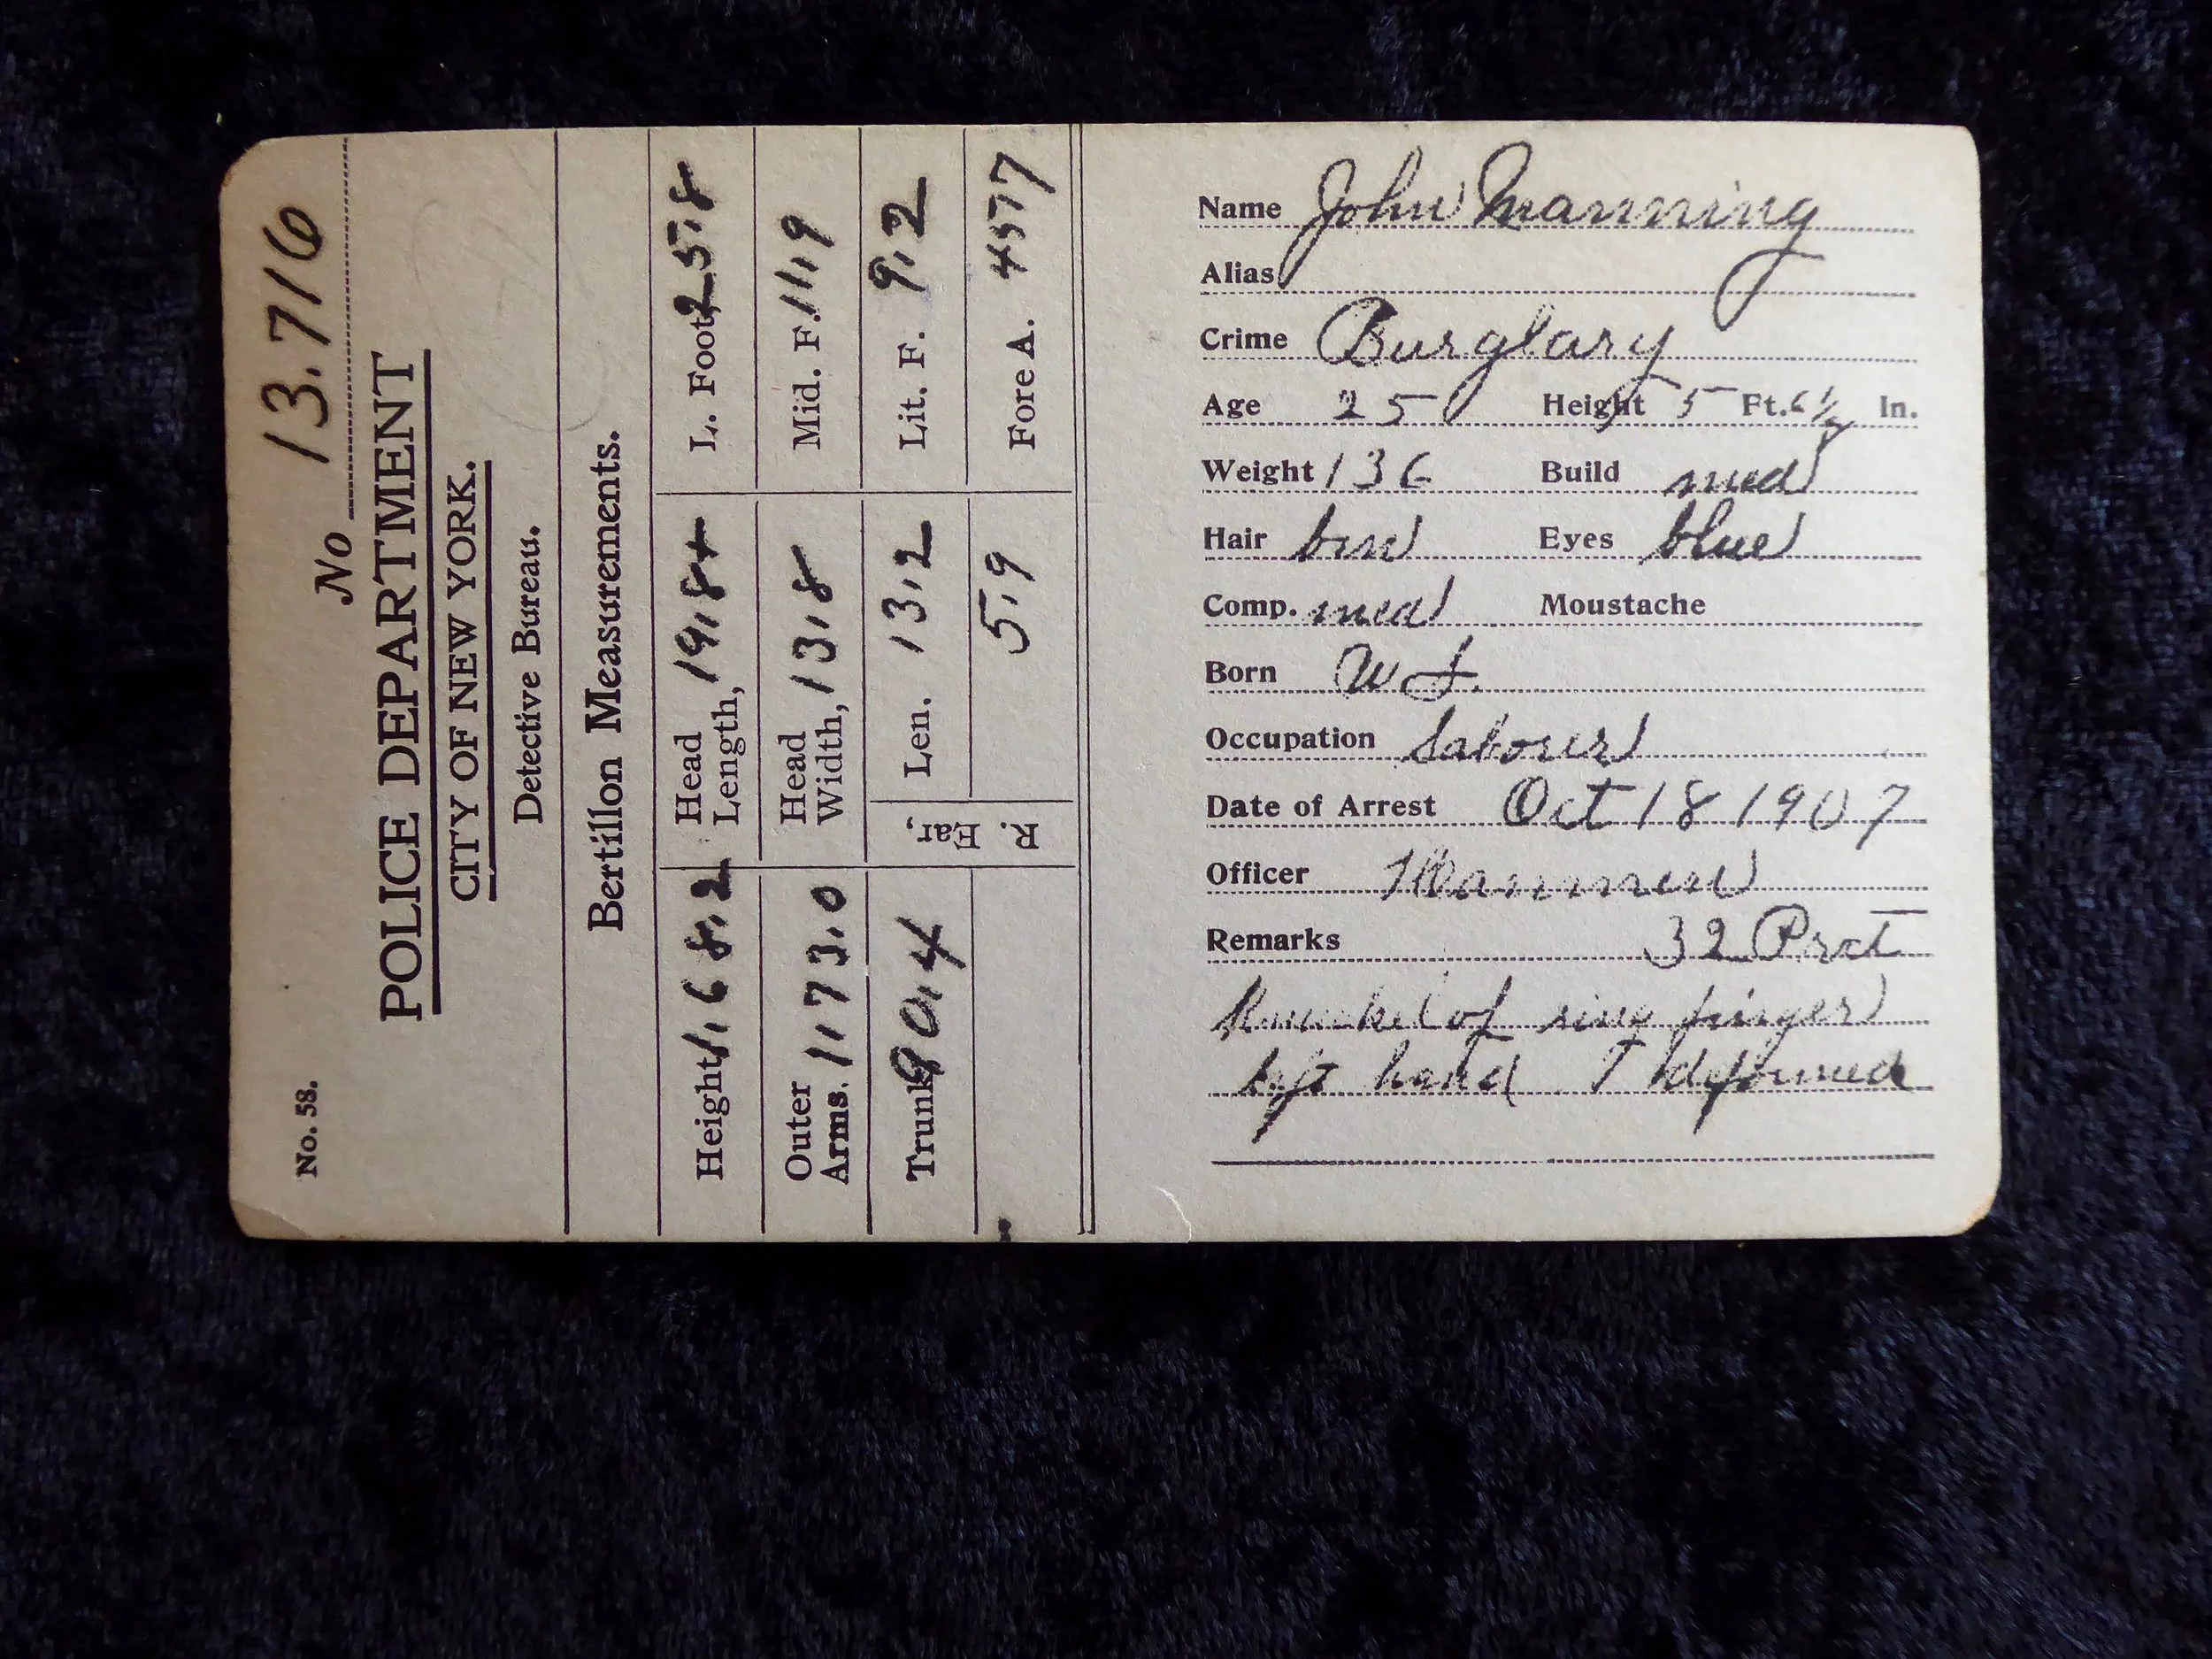 No 13.716
No. 58.
POLICE DEPARTMENT
CITY OF NEW YORK.
Detective Bureau.
Bertillon Measurements.
Height 1.68.2 Head Length, 19.8+ L. Foot, 25.8
Outer Arms. 1.73.0 Head Width, 13.8 Mid. F. 11.9
Trunk 90.4 R. Ear, Len. 13.2 Lit. F. 9.2
5.9 Fore A. 4577
Name John Manning
Alias
Crime Burglary
Age 25 Height 5 Ft. 6 1/2 In.
Weight 136 Build med
Hair brn Eyes blue
Comp. med Moustache
Born
Occupation Laborer
Date of Arrest Oct 18 1907
Officer
Remarks 32 Prct
of ring finger
left hand deformed